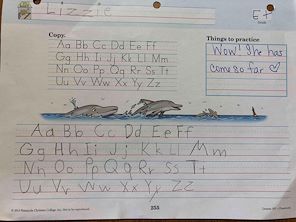 Lizzie
E+
Copy.
Things to practice.
Aa Bb Cc Dd Ee Ff
Gg Hh Ii Jj Kk Ll Mm
Nn Oo Pp Qq Rr Ss Tt
Uu Vv Ww Xx Yy Zz
Wow! She has
come so far
Aa Bb Cc Dd Ee Ff
Gg Hh Ii Jj Kk Ll Mm
Nn Oo Pp Qq Rr Ss Tt
Uu Vv Ww Xx Yy Zz
255